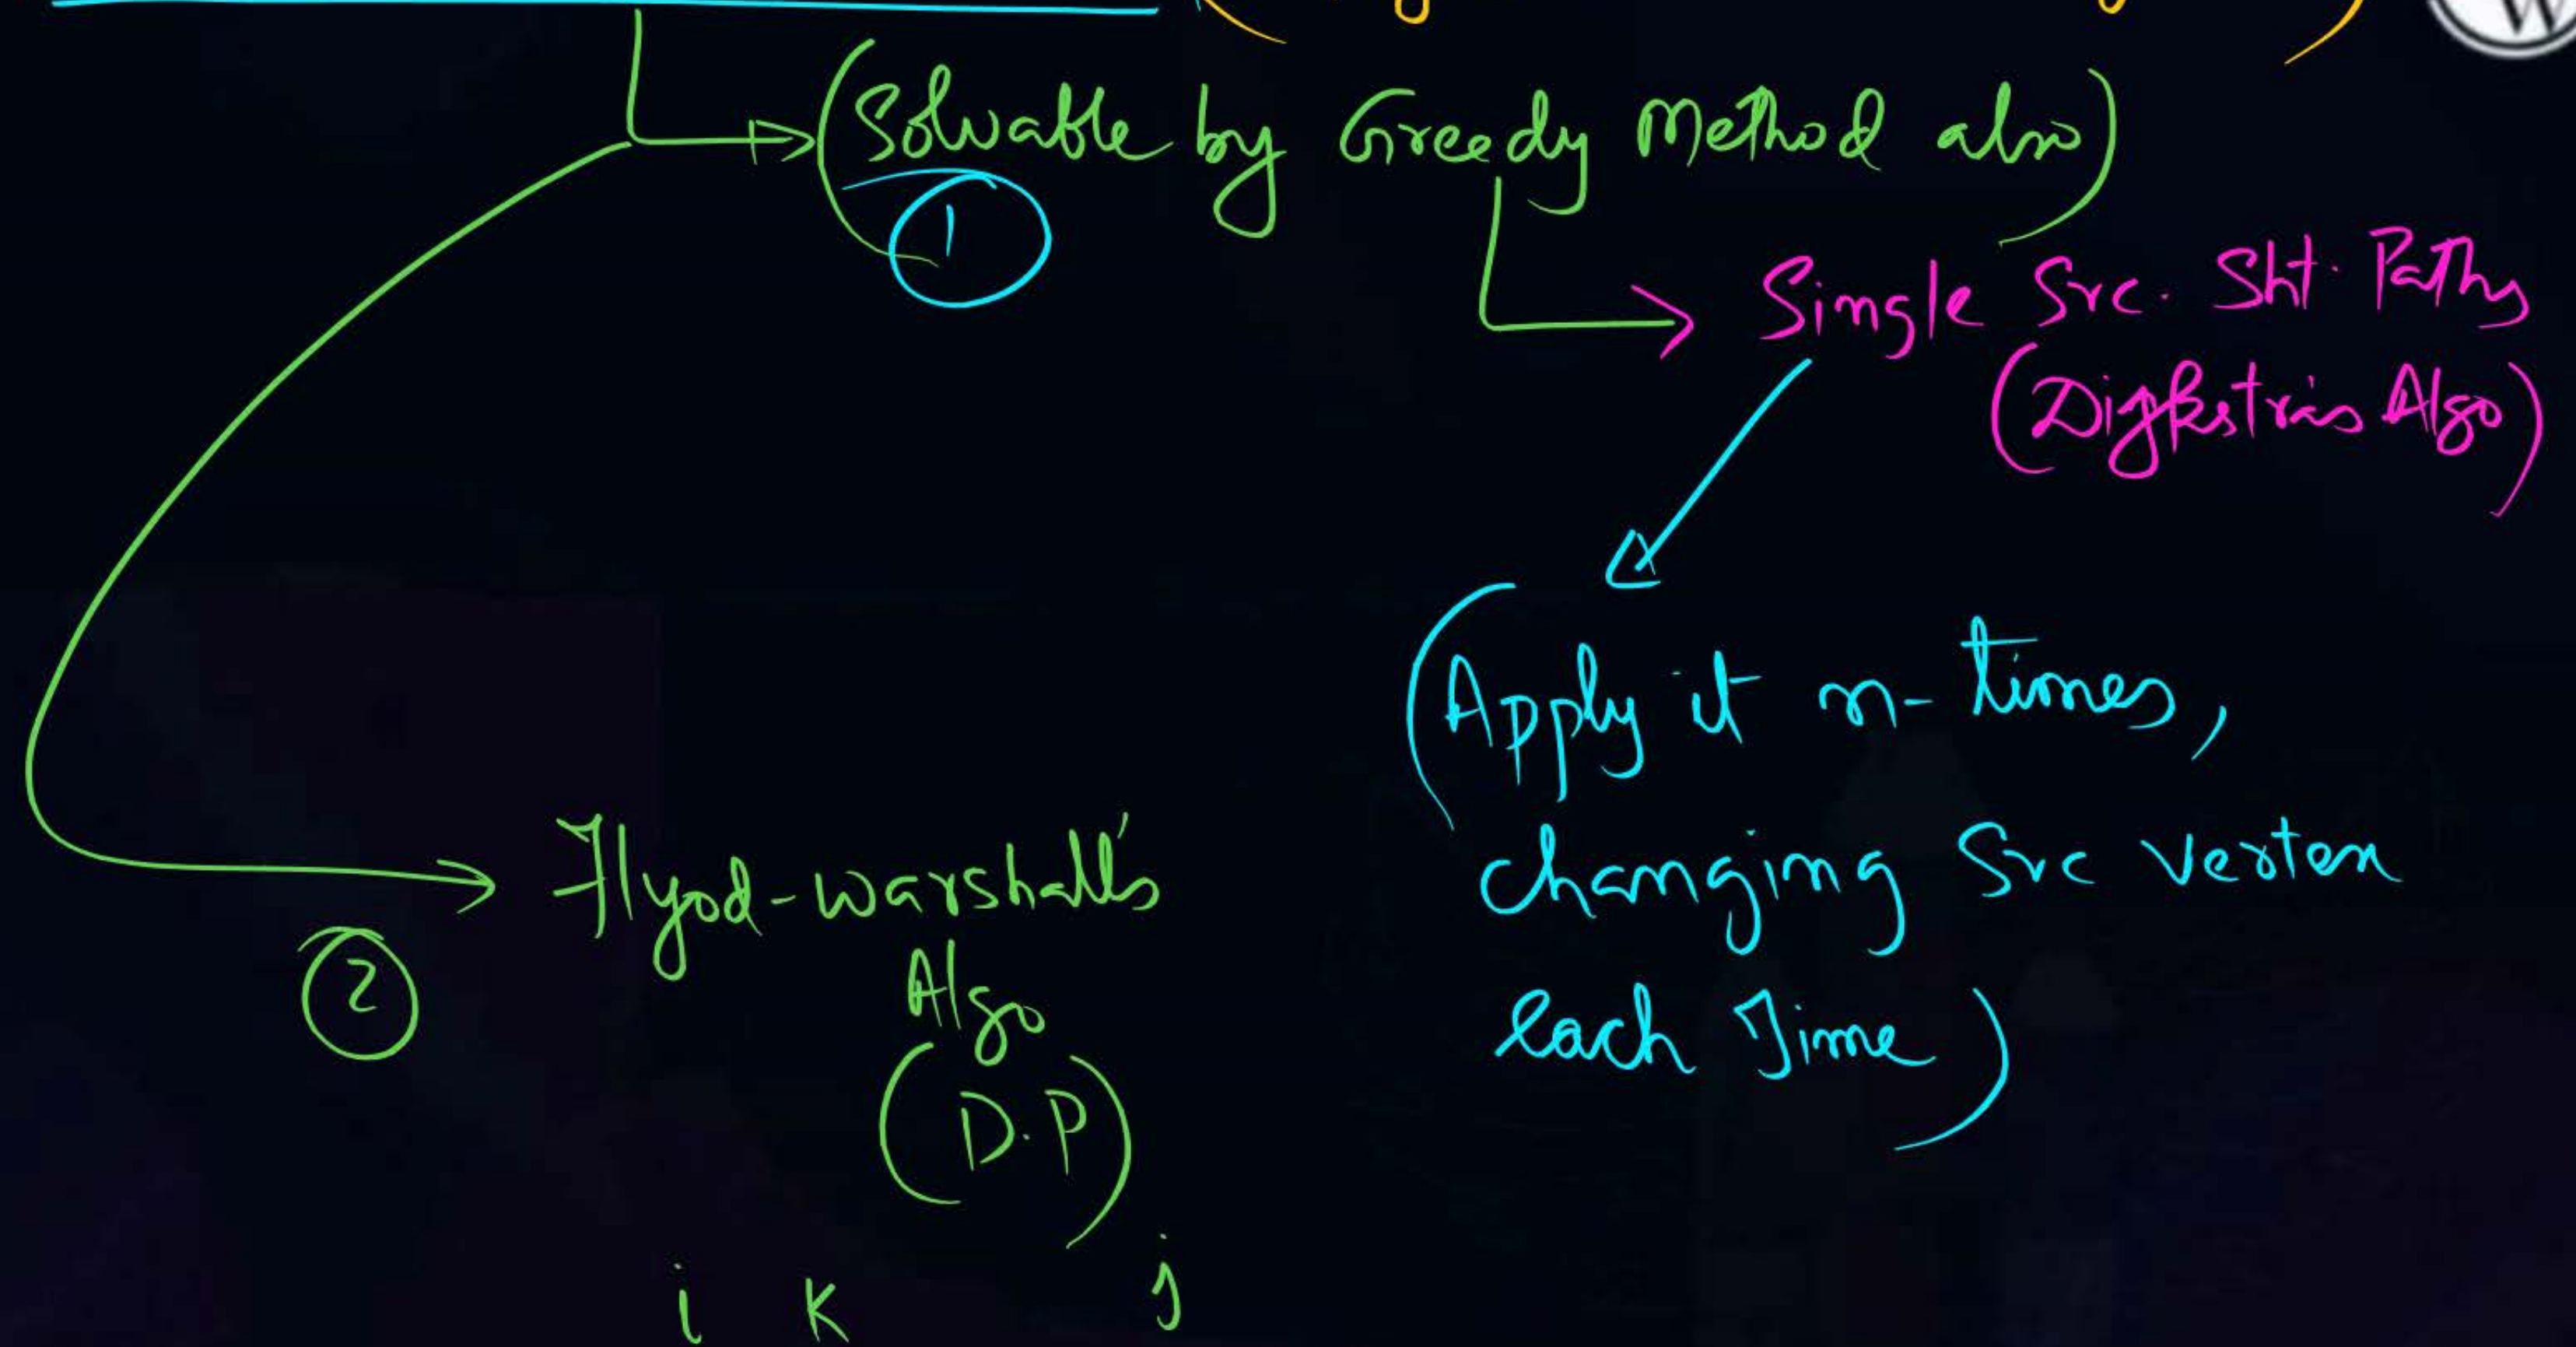 (Solvable by Greedy Method also)
1
Single Src. Sht. Paths
(Digkstra's Algo)
(Apply it n-times,
changing Src vertex
each Time)
Flyod-warshall's
Algo
(D.P)
2
i k j